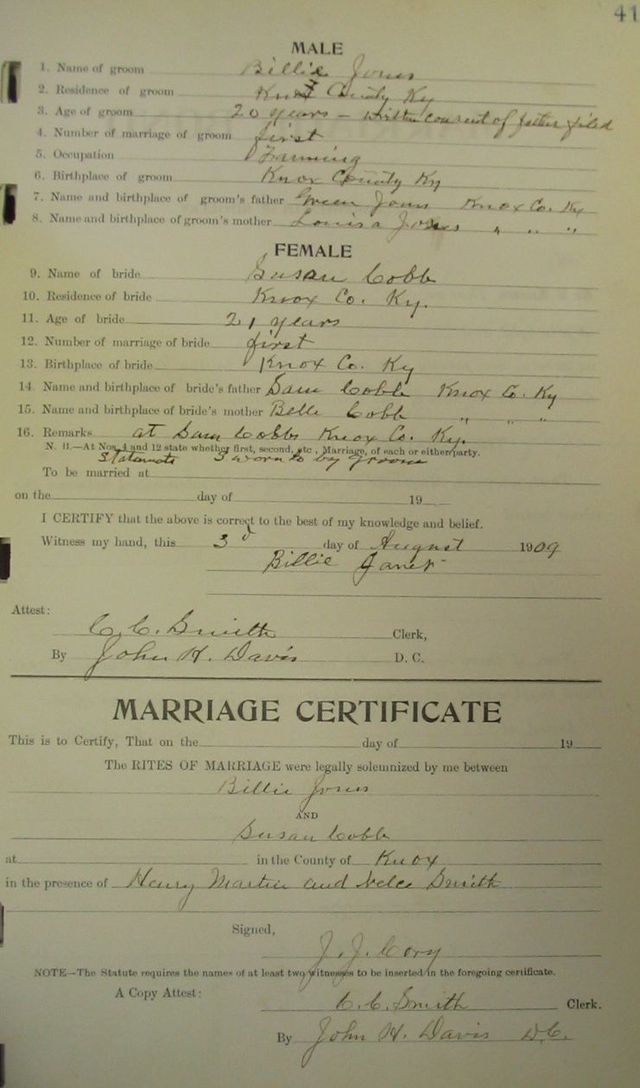 41
MALE
1. Name of groom Billie Jones
2. Residence of groom Knox County Ky
3. Age of groom 20 years – written consent of father filed
4. Number of marriage of groom first
5. Occupation Farming
6. Birthplace of groom Knox County Ky
7. Name and birthplace of groom's father Green Jones Knox Co. Ky
8. Name and birthplace of groom's mother Louisa Jones " " "
FEMALE
9. Name of bride Susan Cobb
10. Residence of bride Knox Co. Ky.
11. Age of bride 21 years
12. Number of marriage of bride first
13. Birthplace of bride Knox Co. Ky
14. Name and birthplace of bride's father Sam Cobb Knox Co. Ky
15. Name and birthplace of bride's mother Belle Cobb " " "
16. Remarks at Sam Cobbs Knox Co. Ky.
N. B.—At Nos. 4 and 12 state whether first, second, etc., Marriage, of each or either party.
Statements sworn to by groom
To be married at
on the day of 19
I CERTIFY that the above is correct to the best of my knowledge and belief.
Witness my hand, this 3d day of August 1909
Billie Jones
Attest:
C. C. Smith Clerk,
By John H. Davis D. C.
MARRIAGE CERTIFICATE
This is to Certify, That on the day of 19
The RITES OF MARRIAGE were legally solemnized by me between
Billie Jones
AND
Susan Cobb
at in the County of Knox
in the presence of Henry Martin and Smith
Signed,
J. J. Cory
NOTE—The Statute requires the names of at least two witnesses to be inserted in the foregoing certificate.
A Copy Attest: C. C. Smith Clerk.
By John H. Davis D.C.